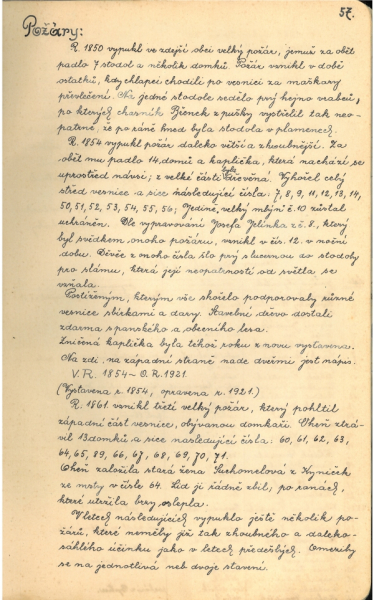 57.
Požáry:
R. 1850 vypukl ve zdejší obci velký požár, jemuž za oběť
padlo 7 stodol a několik domků. Požár vznikl v době
ostatků, kdy chlapci chodili po vesnici za maškary
převlečení. Na jedné stodole sedělo prý hejno vrabců,
po kterých chasník Bienek z pušky vystřelil tak neo-
patrně, že po ráně hned byla stodola v plamenech.
R. 1854 vypukl požár daleko větší a zhoubnější. Za
oběť mu padlo 14 domů a kaplička, která nachází se
uprostřed návsi; z velké části byla dřevěná. Vyhořel celý
střed vesnice a sice následující čísla: 7, 8, 9, 11, 12, 13, 14,
50, 51, 52, 53, 54, 55, 56; Jedině velký mlýn č. 10 zůstal
uchráněn. Dle vypravování Josefa Jelínka z č. 8., který
byl svědkem onoho požáru, vznikl v čís. 12. v noční
dobu. Děvče z onoho čísla šlo prý s lucernou do stodoly
pro slámu, která její neopatrností od světla se
vzňala.
Postiženým, kterým vše shořelo podporovaly různé
vesnice sbírkami a dary. Stavební dřevo dostali
zdarma z panského a obecního lesa.
Zničená kaplička byla téhož roku znovu vystavena.
Na zdi na západní straně nade dveřmi jest nápis:
V. R. 1854 – O. R. 1921.
(Vystavena r. 1854, opravena r. 1921.)
R. 1861 vznikl třetí velký požár, který pohltil
západní část vesnice, obývanou domkaři. Oheň ztrá-
vil 13 domků a sice následující čísla: 60, 61, 62, 63,
64, 65, 89, 66, 67, 68, 69, 70, 71.
Oheň založila stará žena Suchomelová z Kyniček
ze msty v čísle 64. Lid ji řádně zbil, po ranách,
které utržila brzy oslepla.
V letech následujících vypuklo ještě několik po-
žárů, které neměly již tak zhoubného a daleko-
sáhlého účinku jako v letech předešlých. Omezily
se na jednotlivá neb dvoje stavení.